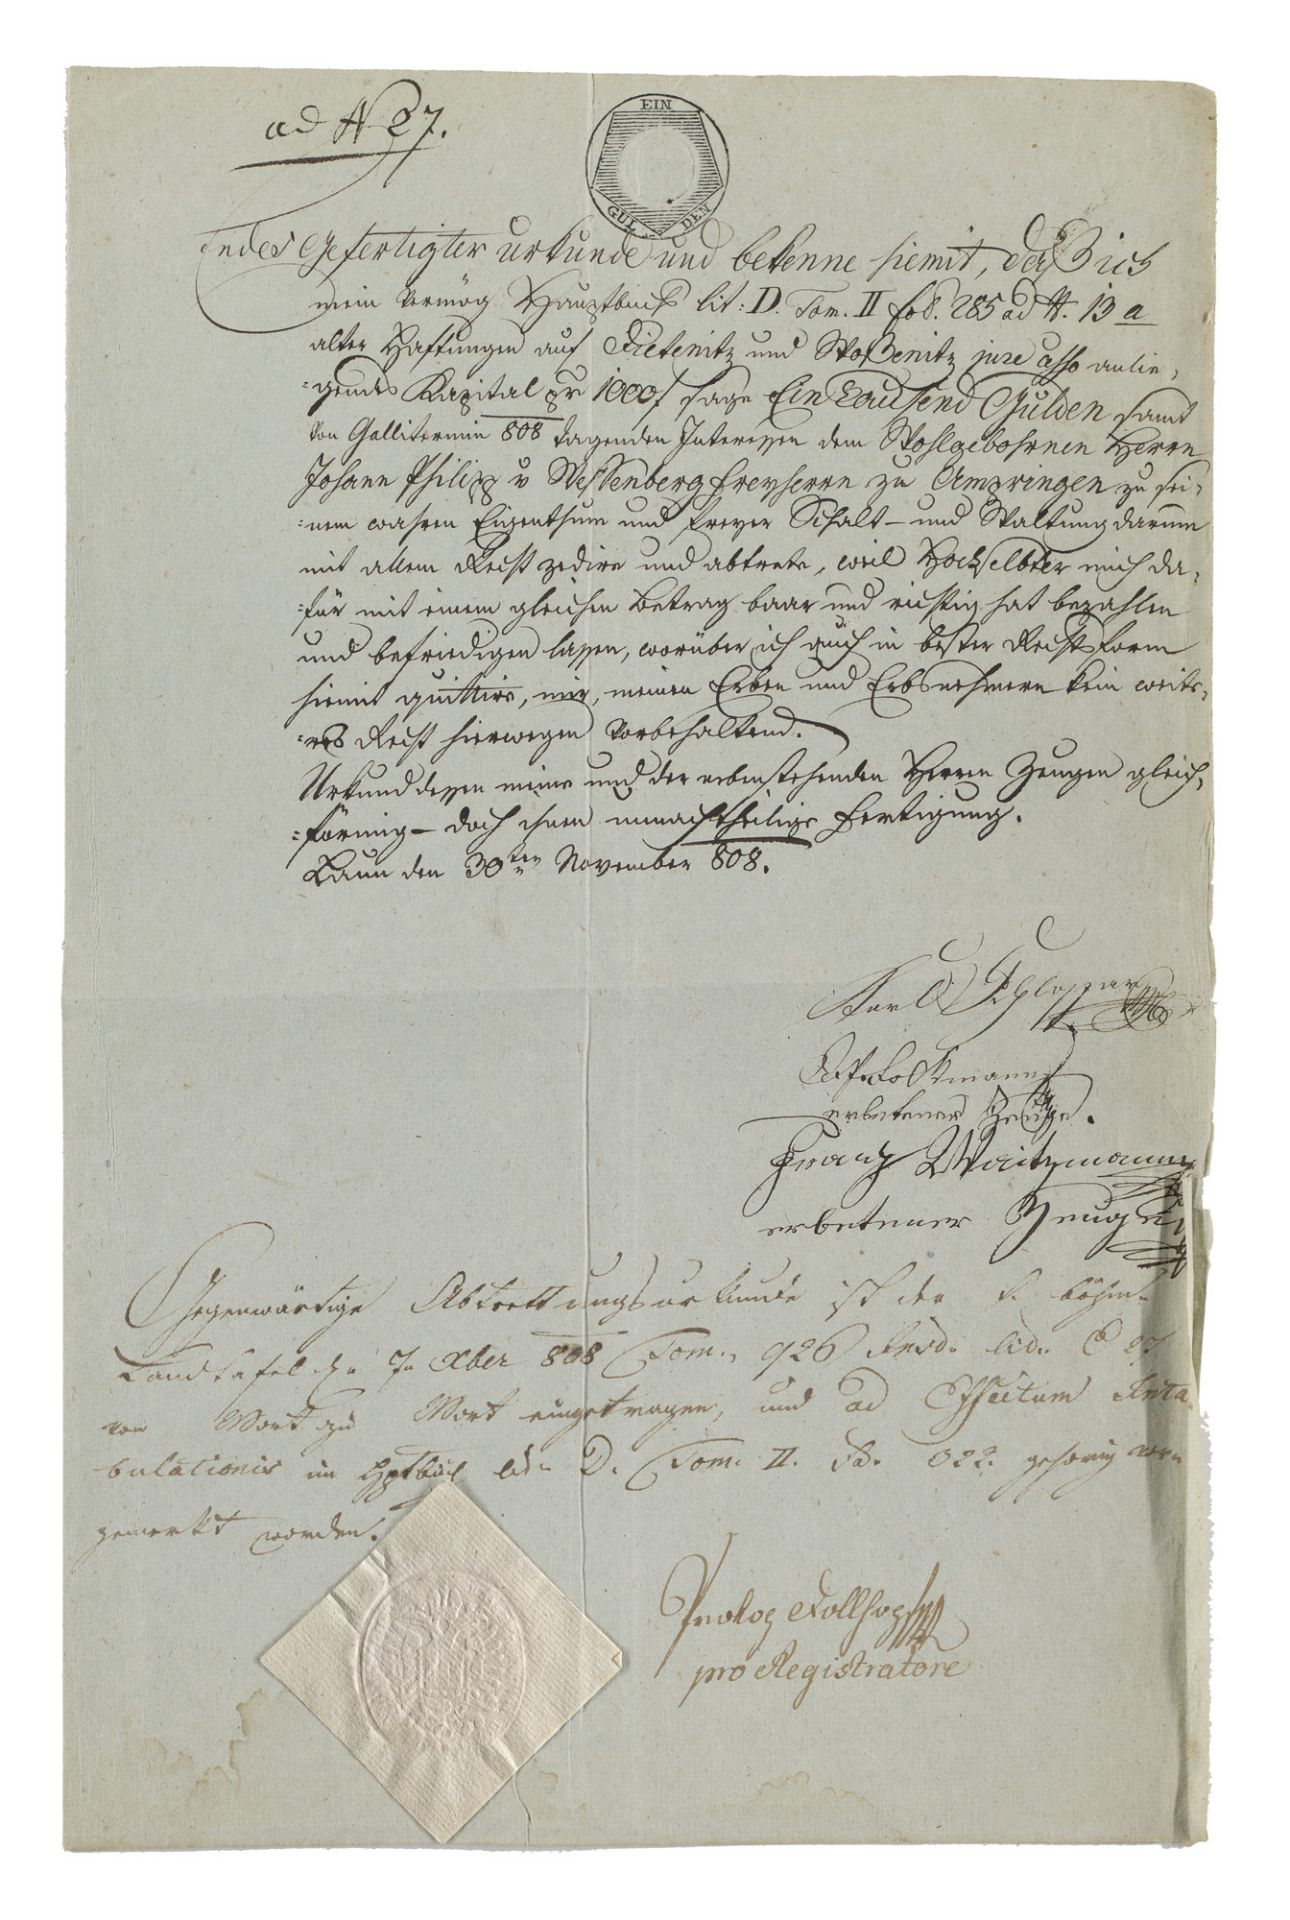 ad N 27.
EIN
GUL DEN
Endes Gefertigter urkunde und bekenne hiemit, daß ich
mein vermög Hauptbuch lit: D. Tom. II fol. 285 ad N. 13 a
alter Haftungen auf Dietenitz und Woßenitz jure cesso anlie,
=gendes Kapital pr 1000 f sage Ein Tausend Gulden samt
von Gallitermin 808 tagenden Interessen dem Wohlgebohrnen Herrn
Johann Philipp v Wessenberg Freyherrn zu Ampringen zu sei,
=nem wahren Eigenthum und freyer Schalt- und Waltung darum
mit allem Recht zedire und abtrete, weil Hochselbter mich da,
=für mit einem gleichen Betrag baar und richtig hat bezahlen
und befriedigen lassen, worüber ich auch in bester Rechtsform
hiemit quittire, mir, meinen Erben und Erbsnehmern kein weite,
=res Recht hierwegen vorbehaltend.
Urkund dessen meine und der nebenstehenden Herrn Zeugen gleich,
=förmig - doch ihnen unnachtheilige Fertigung.
Laun den 30ten November 808.
Karl Schlossar
erbetener Zeuge.
Franz Waitzmann
erbetener Zeuge
Gegenwärtige Abtrettungsurkunde ist der k. böhm.
Landtafel den 7. Xber 808 Tom. 926 lit. C 27
von Wort zu Wort eingetragen, und ad Effectum Inta,
bulationis im Hptbuch lit. D. Tom. II. fol. 322. gehörig vor,
gemerkt worden.
Prokop
pro Registratore